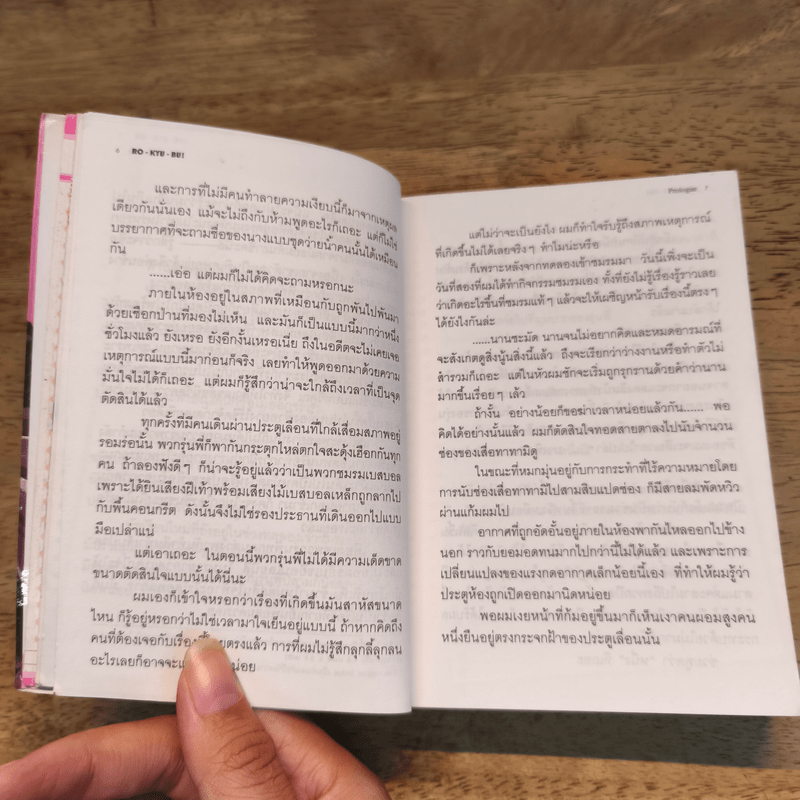 6 RO-KYU-BU!
และการที่ไม่มีคนทำลายความเงียบนี้ก็มาจากเหตุผล
เดียวกันนั่นเอง แม้จะไม่ถึงกับห้ามพูดอะไรก็เถอะ แต่ก็ไม่ใช่
บรรยากาศที่จะถามชื่อของนางแบบชุดว่ายน้ำคนนั้นได้เหมือน
กัน
......เอ่อ แต่ผมก็ไม่ได้คิดจะถามหรอกนะ
ภายในห้องอยู่ในสภาพที่เหมือนกับถูกพันไปพันมา
ด้วยเชือกป่านที่มองไม่เห็น และมันก็เป็นแบบนี้มากว่าหนึ่ง
ชั่วโมงแล้ว ยังเหรอ ยังอีกงั้นเหรอเนี่ย ถึงในอดีตจะไม่เคยเจอ
เหตุการณ์แบบนี้มาก่อนก็จริง เลยทำให้พูดออกมาด้วยความ
มั่นใจไม่ได้ก็เถอะ แต่ผมก็รู้สึกว่าน่าจะใกล้ถึงเวลาที่เป็นจุด
ตัดสินได้แล้ว
ทุกครั้งที่มีคนเดินผ่านประตูเลื่อนที่ใกล้เสื่อมสภาพอยู่
รอมร่อนั้น พวกรุ่นพี่ก็พากันกระตุกไหล่ตกใจสะดุ้งเฮือกกันทุก
คน ถ้าลองฟังดีๆ ก็น่าจะรู้อยู่แล้วว่าเป็นพวกชมรมเบสบอล
เพราะได้ยินเสียงฝีเท้าพร้อมเสียงไม้เบสบอลเหล็กถูกลากไป
กับพื้นคอนกรีต ดังนั้นจึงไม่ใช่รองประธานที่เดินออกไปแบบ
มือเปล่าแน่
แต่เอาเถอะ ในตอนนี้พวกรุ่นพี่ไม่ได้มีความเด็ดขาด
ขนาดตัดสินใจแบบนั้นได้นี่นะ
ผมเองก็เข้าใจหรอกว่าเรื่องที่เกิดขึ้นมันสาหัสขนาด
ไหน ก็รู้อยู่หรอกว่าไม่ใช่เวลามาใจเย็นอยู่แบบนี้ ถ้าหากคิดถึง
คนที่ต้องเจอกับเรื่อง ตรงแล้ว การที่ผมไม่รู้สึกลุกลี้ลุกลน
อะไรเลยก็อาจจะ หน่อย
Prologue 7
แต่ไม่ว่าจะเป็นยังไง ผมก็ทำใจรับรู้ถึงสภาพเหตุการณ์
ที่เกิดขึ้นไม่ได้เลยจริงๆ ทำไมน่ะหรือ
ก็เพราะหลังจากทดลองเข้าชมรมมา วันนี้เพิ่งจะเป็น
วันที่สองที่ผมได้ทำกิจกรรมชมรมเอง ทั้งที่ยังไม่รู้เรื่องรู้ราวเลย
ว่าเกิดอะไรขึ้นที่ชมรมแท้ๆ แล้วจะให้เผชิญหน้ารับเรื่องนี้ตรงๆ
ได้ยังไงกันล่ะ
......นานชะมัด นานจนไม่อยากคิดและหมดอารมณ์ที่
จะสังเกตดูสิ่งนู้นสิ่งนี้แล้ว ถึงจะเรียกว่าว่างงานหรือทำตัวไม่
สำรวมก็เถอะ แต่ในหัวผมชักจะเริ่มถูกรุกรานด้วยคำว่านาน
มากขึ้นเรื่อยๆ เล้ว
ถ้างั้น อย่างน้อยก็ขอฆ่าเวลาหน่อยแล้วกัน...... พอ
คิดได้อย่างนั้นแล้ว ผมก็ตัดสินใจทอดสายตาลงไปนับจำนวน
ช่องของเสื่อทาทามิดู
ในขณะที่หมกมุ่นอยู่กับการกระทำที่ไร้ความหมายโดย
การนับช่องเสื่อทาทามิไปสามสิบแปดช่อง ก็มีสายลมพัดหวิว
ผ่านแก้มผมไป
อากาศที่ถูกอัดอั้นอยู่ภายในห้องพากันไหลออกไปข้าง
นอก ราวกับยอมอดทนมากไปกว่านี้ไม่ได้แล้ว และเพราะการ
เปลี่ยนแปลงของแรงกดอากาศเล็กน้อยนี้เอง ที่ทำให้ผมรู้ว่า
ประตูห้องถูกเปิดออกมานิดหน่อย
พอผมเงยหน้าที่ก้มอยู่ขึ้นมาก็เห็นเงาคนผอมสูงคน
หนึ่งยืนอยู่ตรงกระจกฝ้าของประตูเลื่อนนั้น